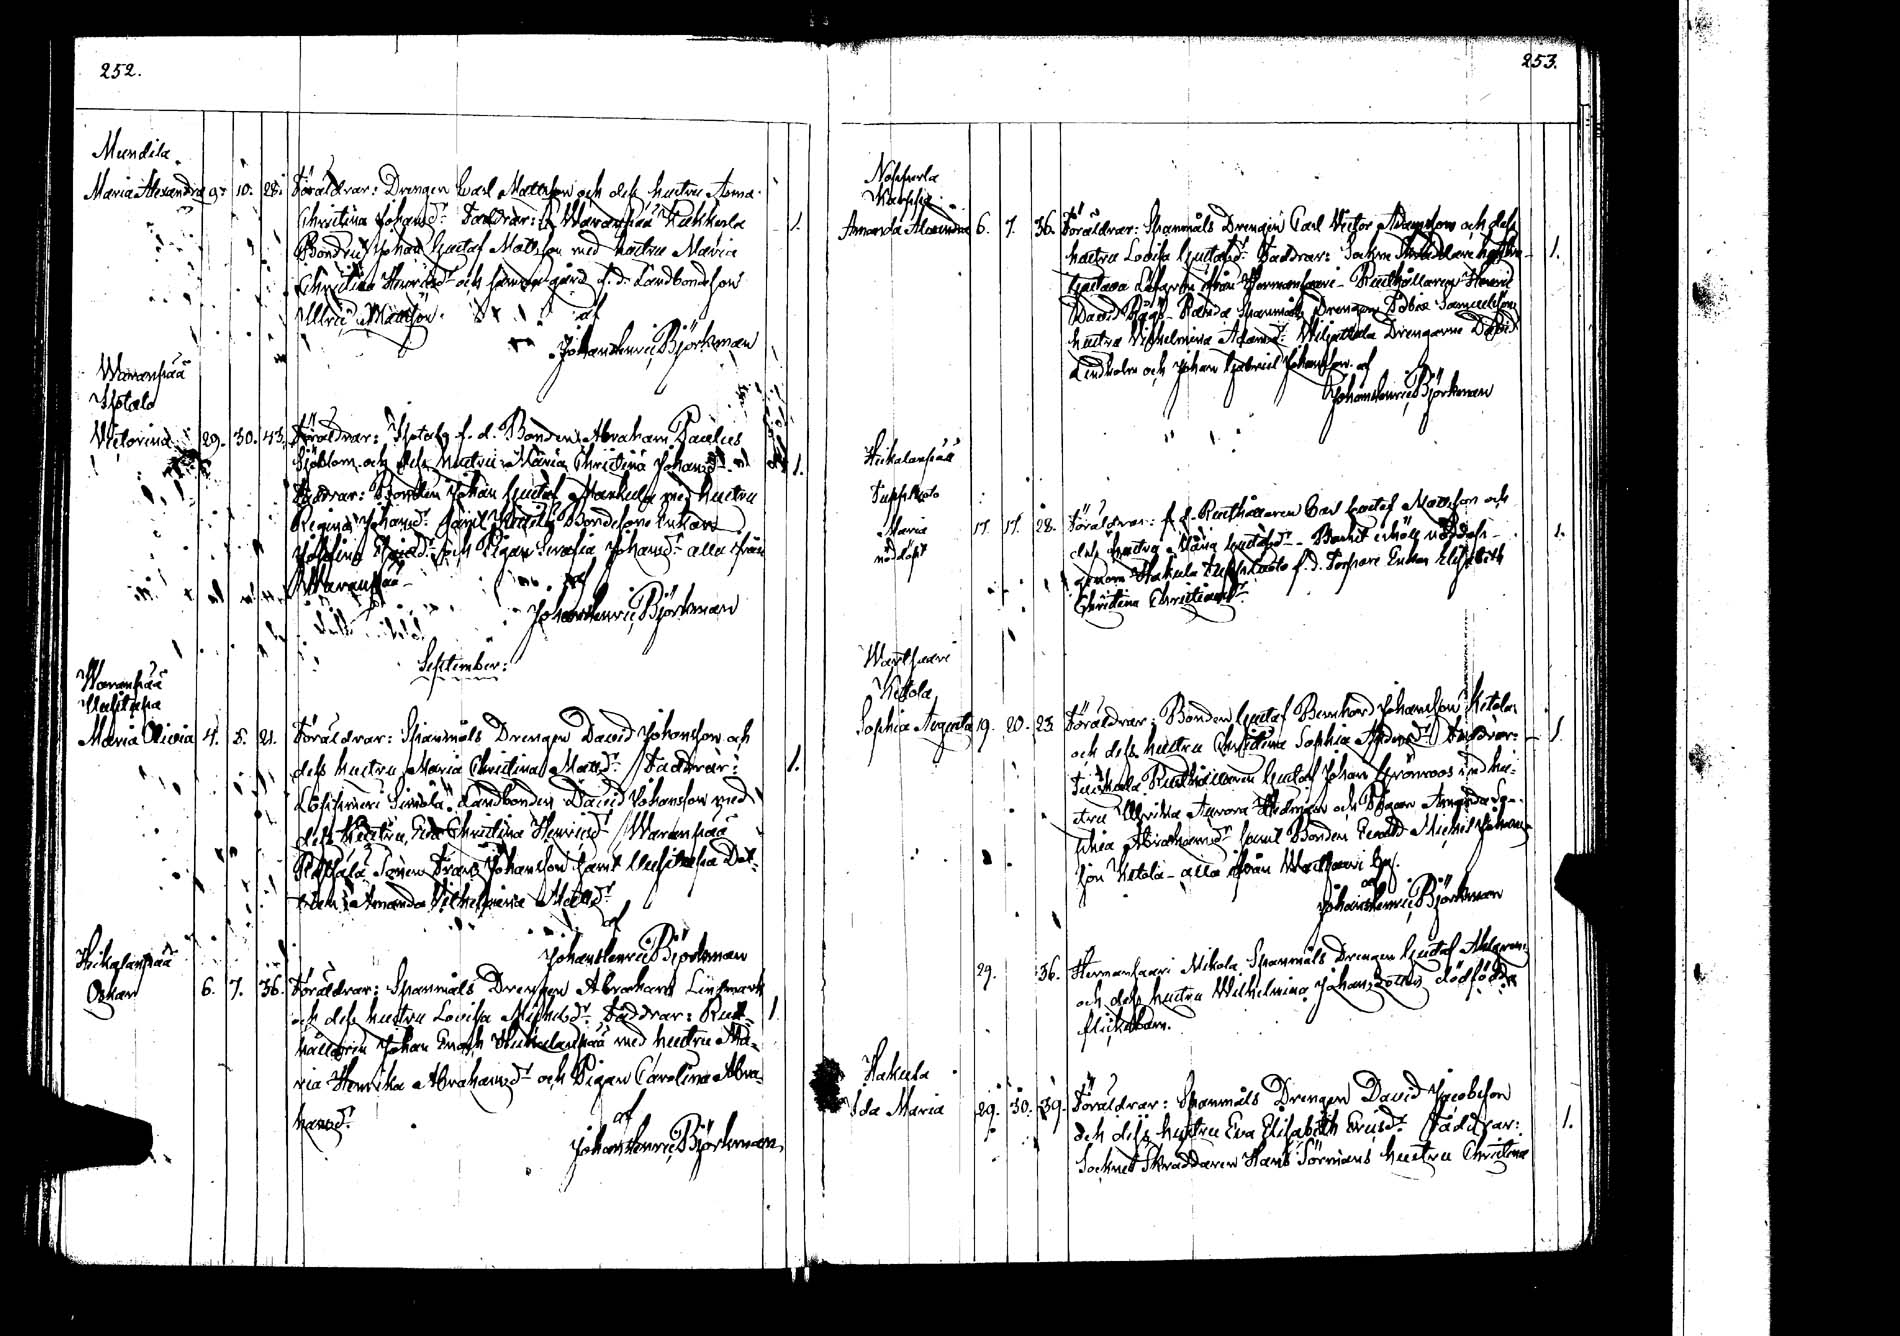 252.
Mundila
Maria Alexandra 9. 10. 28. Föräldrar: Drengen Carl Mattsson och dess hustru Anna
Christina Johansdr. Faddrar: Waranpää Kukkola
Bonden Johan Gustaf Mattsson med hustru Maria
Christina Henricsdr och samma gård f. d. Landbondeson
Ulric Mattsson.
af
Johan Henric Björkman
Waranpää
Sjötalo
Victorina 29. 30. 43. Föräldrar: Sjötalo f. d. Bonden Abraham Paulus
Sjöblom och dess hustru Maria Christina Johansdr
Faddrar: Bonden Johan Gustaf Markula med hustru
Regina Johansdr samt Bondesone Enkan
Josefina och Pigan Serafia Johansdr alla från
Waranpää
af
Johan Henric Björkman
September:
Waranpää
Uusitupa
Maria Olivia 4. 5. 21. Föräldrar: Spanmåls Drengen David Johansson och
dess hustru Maria Christina Mattsdr Faddrar:
Simola Landbonden David Johansson med
dess hustru Eva Christina Henricsdr Waranpää
Sonen Frans Johansson samt Uusitupa Dot-
tren Amanda Vilhelmina Mattsdr
af
Johan Henric Björkman
Heikalanpää
Oskar 6. 7. 36. Föräldrar: Spanmåls Drengen Abraham Linsmark
och dess hustru Lovisa Michelsdr Faddrar: Rust-
hållaren Johan Enoch Heikalanpää med hustru Ma-
ria Henrika Abrahamsdr och Pigan Carolina Abra-
hamsdr
af
Johan Henric Björkman
253.
Nopperla
Amanda Alexandra 6. 7. 36. Föräldrar: Spanmåls Drengen Carl Victor Adamsson och dess
hustru Lovisa Gustafsdr. Faddrar: Sockne Skräddare hustru
Gustava Löfgren från Hermansaari - Rusthållaren Henric
David Spanmåls Drengen Tobias Samuelsson
hustru Vilhelmina Adamsdr. Drengarne David
Lindholm och Johan Gabriel Johansson. af
Johan Henric Björkman
Heikalanpää
Maria 17. 17. 28. Föräldrar: f. d. Rusthållaren Carl Gustaf Mattsson och
nöddöpt
dess hustru Maria Gustafsdr - Barnet erhöll nöddop
genom Hakula f. d. Torpare Enkan Elisabeth
Christina Christiansdr.
Wartsaari
Ketola
Sophia Augusta 19. 20. 23. Föräldrar: Bonden Gustaf Bernhard Johansson Ketola
och dess hustru Christina Sophia Andersdr Faddrar:
Rusthållaren Gustaf Johan Grönroos med hu-
stru Ulrika Aurora Hedman och Pigan Amanda So-
phia Abrahamsdr samt Bonden Evald Michel Johans-
son Ketola - alla från Wartsaari by.
af
Johan Henric Björkman
29. 36. Hermansaari Mikola Spanmåls Drengen Gustaf Ahlgren
och dess hustru Wilhelmina Johansdotters dödfödda
flickebarn.
Hakula
Ida Maria 29. 30. 39. Föräldrar: Spanmåls Drengen David Jacobsson
och dess hustru Eva Elisabeth Ericsdr. Faddrar:
Socknet Skräddaren Hans Sörmans hustru Christina